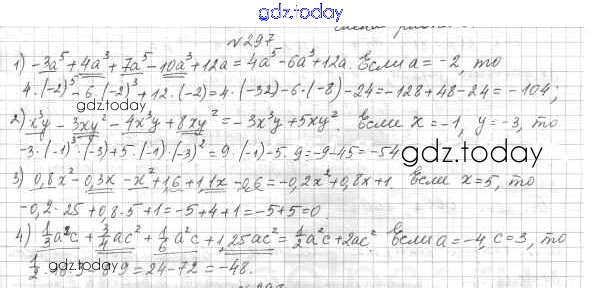 gdz.today
№297
1) -3a⁵+4a³+7a⁵-10a³+12a=4a⁵-6a³+12a. Если a=-2, то
4·(-2)⁵-6·(-2)³+12·(-2)=4·(-32)-6·(-8)-24=-128+48-24=-104;
gdz.today
2) x³y-3xy²-4x³y+8xy²=-3x³y+5xy². Если x=-1, y=-3, то
-3·(-1)³·(-3)+5·(-1)·(-3)²=9·(-1)-5·9=-9-45=-54
gdz.today
3) 0,8x²-0,3x-x²+1,6+1,1x-0,6=-0,2x²+0,8x+1. Если x=5, то
-0,2·25+0,8·5+1=-5+4+1=-5+5=0.
4) 1/3a²c+3/4ac²+1/6a²c+1,25ac²=1/2a²c+2ac². Если a=-4, c=3, то
=24-72=-48.
gdz.today